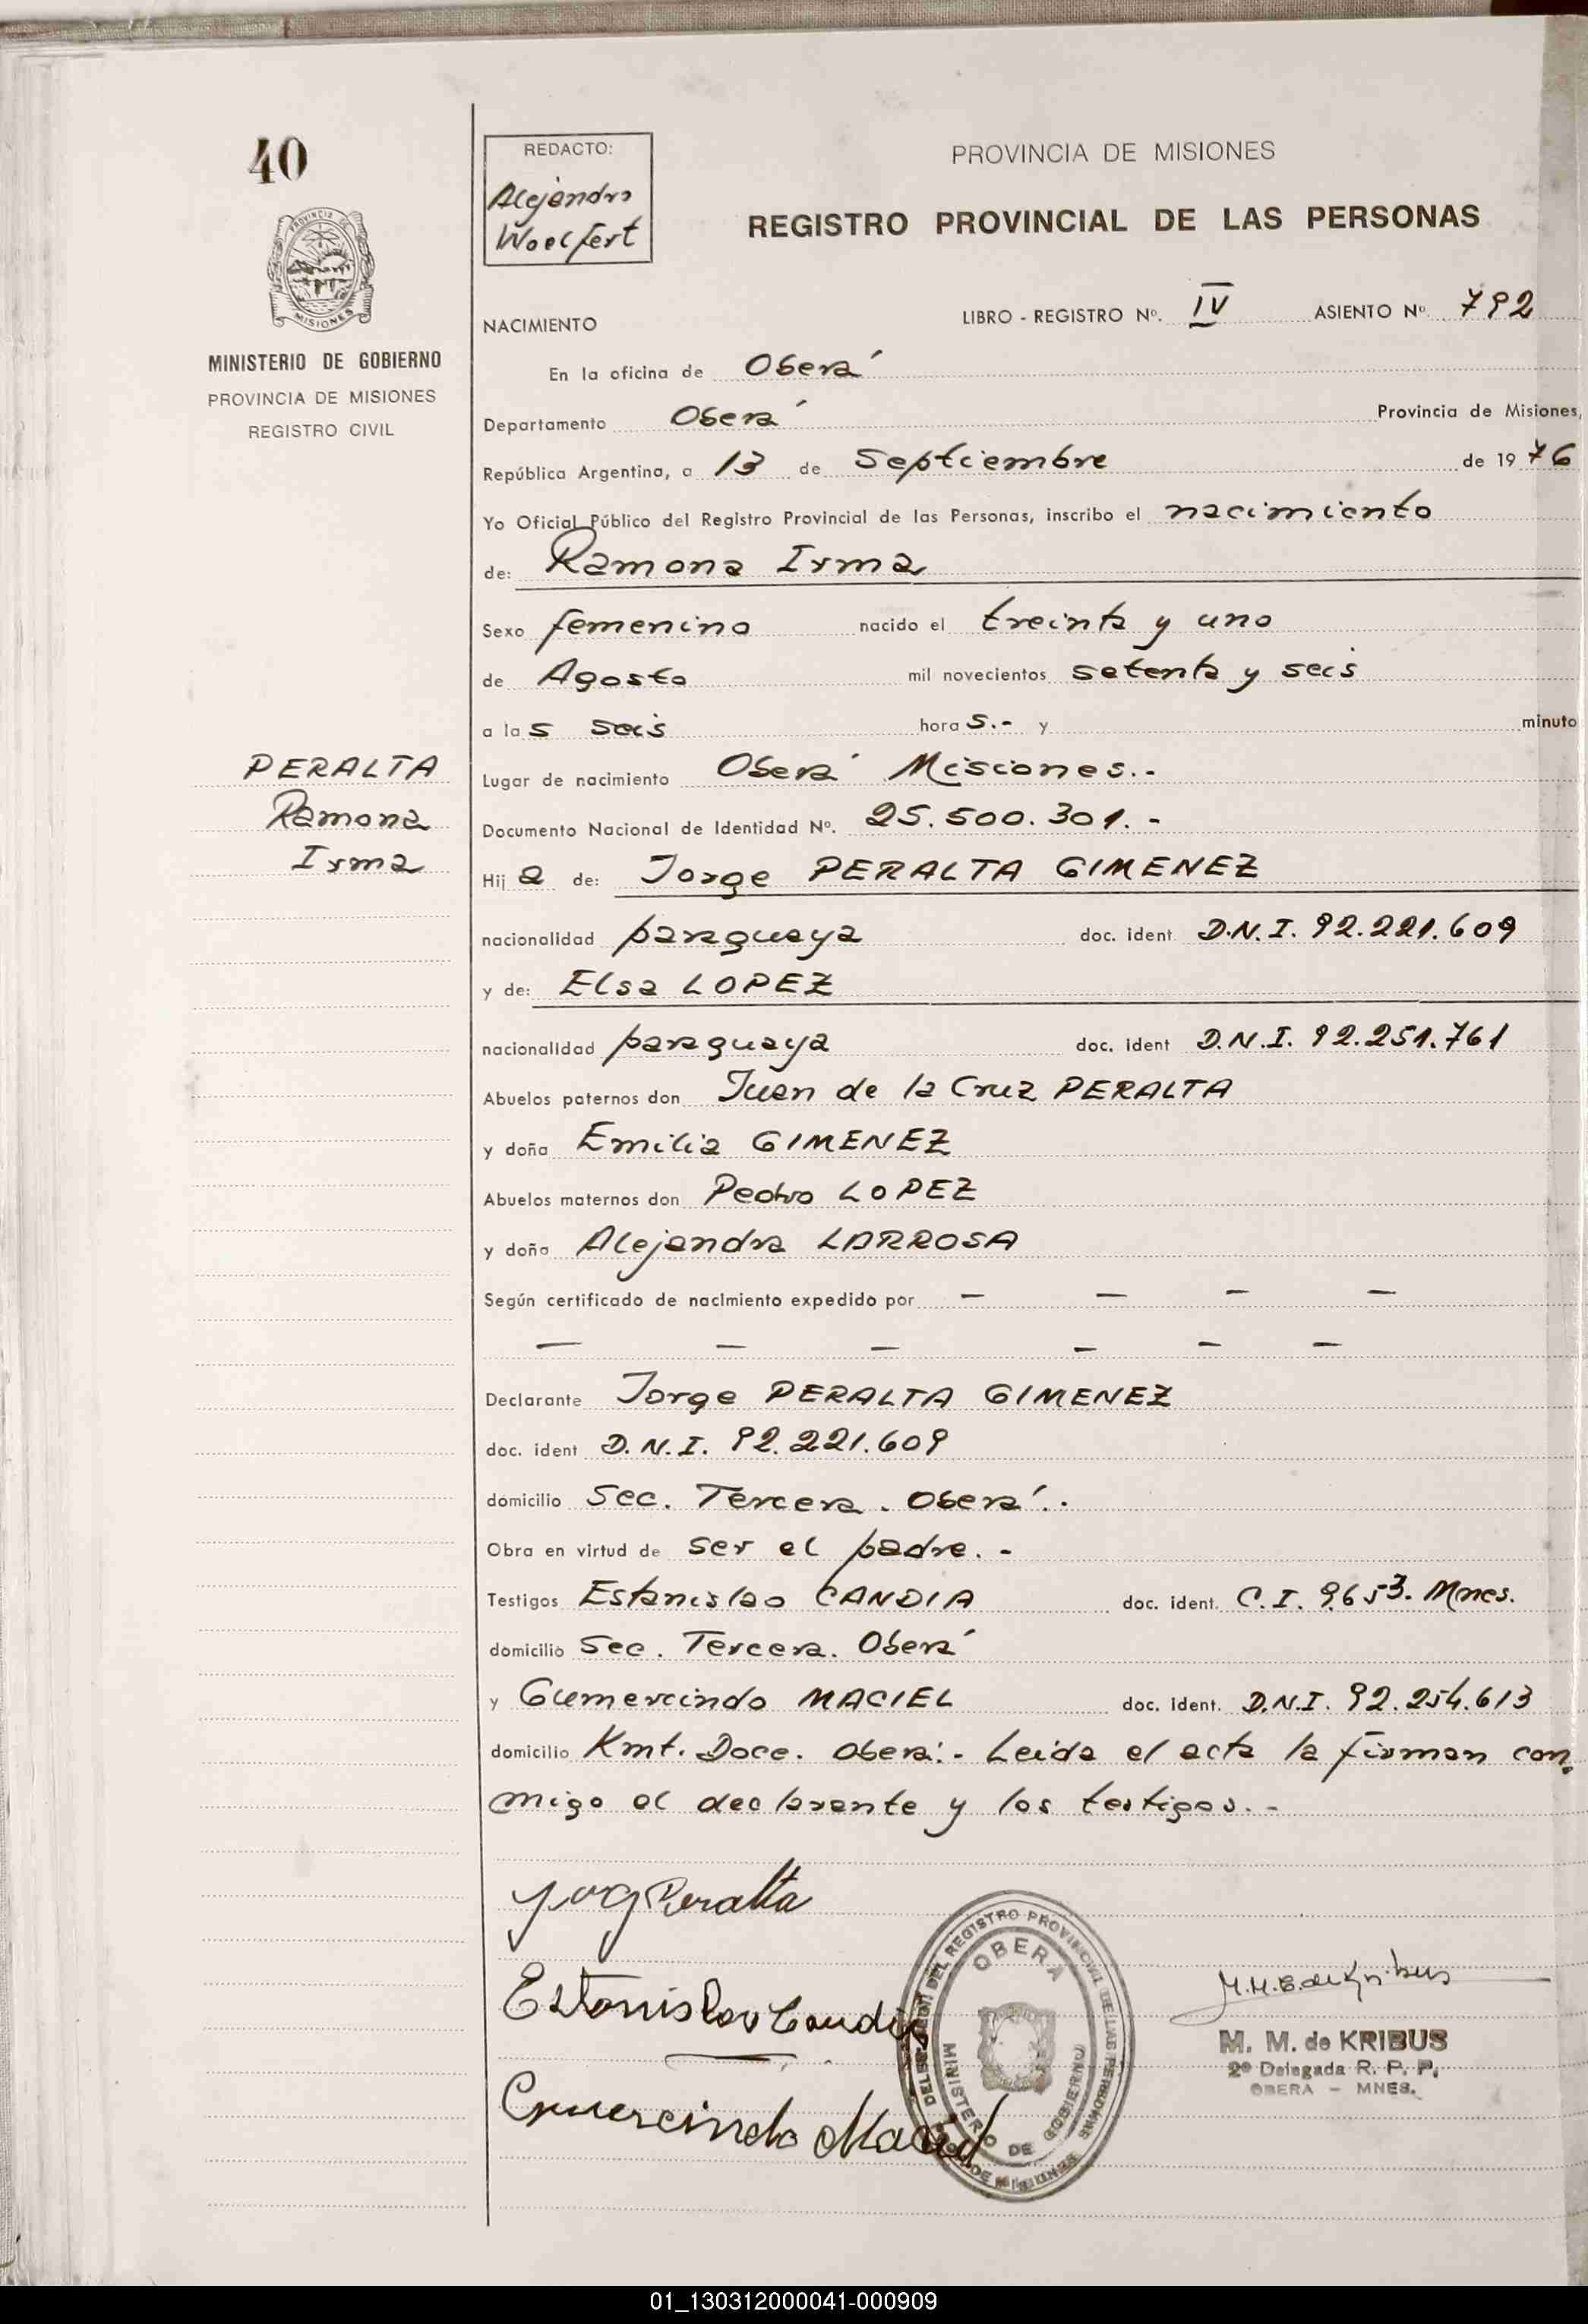 40
REDACTO:
Alejandro
Woelfert
PROVINCIA DE MISIONES
REGISTRO PROVINCIAL DE LAS PERSONAS
MISIONES
MINISTERIO DE GOBIERNO
PROVINCIA DE MISIONES
REGISTRO CIVIL
NACIMIENTO LIBRO - REGISTRO Nº. IV ASIENTO Nº. 792
En la oficina de Oberá
Departamento Oberá Provincia de Misiones,
República Argentina, a 13 de Septiembre de 1976
Yo Oficial Público del Registro Provincial de las Personas, inscribo el nacimiento
de: Ramona Irma
Sexo femenino nacido el treinta y uno
de Agosto mil novecientos setenta y seis
a las seis horas.- y minuto
PERALTA
Ramona
Irma
Lugar de nacimiento Oberá Misiones.-
Documento Nacional de Identidad Nº. 25.500.301.-
Hija de: Jorge PERALTA GIMENEZ
nacionalidad paraguaya doc. ident D.N.I. 92.221.609
y de: Elsa LOPEZ
nacionalidad paraguaya doc. ident D.N.I. 92.251.761
Abuelos paternos don Juan de la Cruz PERALTA
y doña Emilia GIMENEZ
Abuelos maternos don Pedro LOPEZ
y doña Alejandra LARROSA
Según certificado de nacimiento expedido por — — — —
— — — — — —
Declarante Jorge PERALTA GIMENEZ
doc. ident D.N.I. 92.221.609
domicilio Sec. Tercera. Oberá.
Obra en virtud de ser el padre.-
Testigos Estanislao CANDIA doc. ident. C.I. 9.653. Mnes.
domicilio Sec. Tercera. Oberá
y Gumercindo MACIEL doc. ident. D.N.I. 92.254.613
domicilio Kmt. Doce. Oberá.- Leida el acta la firman con
migo el declarante y los testigos.-
Jorg Peralta
Estanislao Candia
Gumercindo Maciel
DEL REGISTRO PROVINCIAL DE LAS PERSONAS
OBERA
MINISTERIO DE GOBIERNO
DE MISIONES
M.M.B. de Kribus
M. M. de KRIBUS
2º Delegada R. P. P.
OBERA - MNES.
01_130312000041-000909